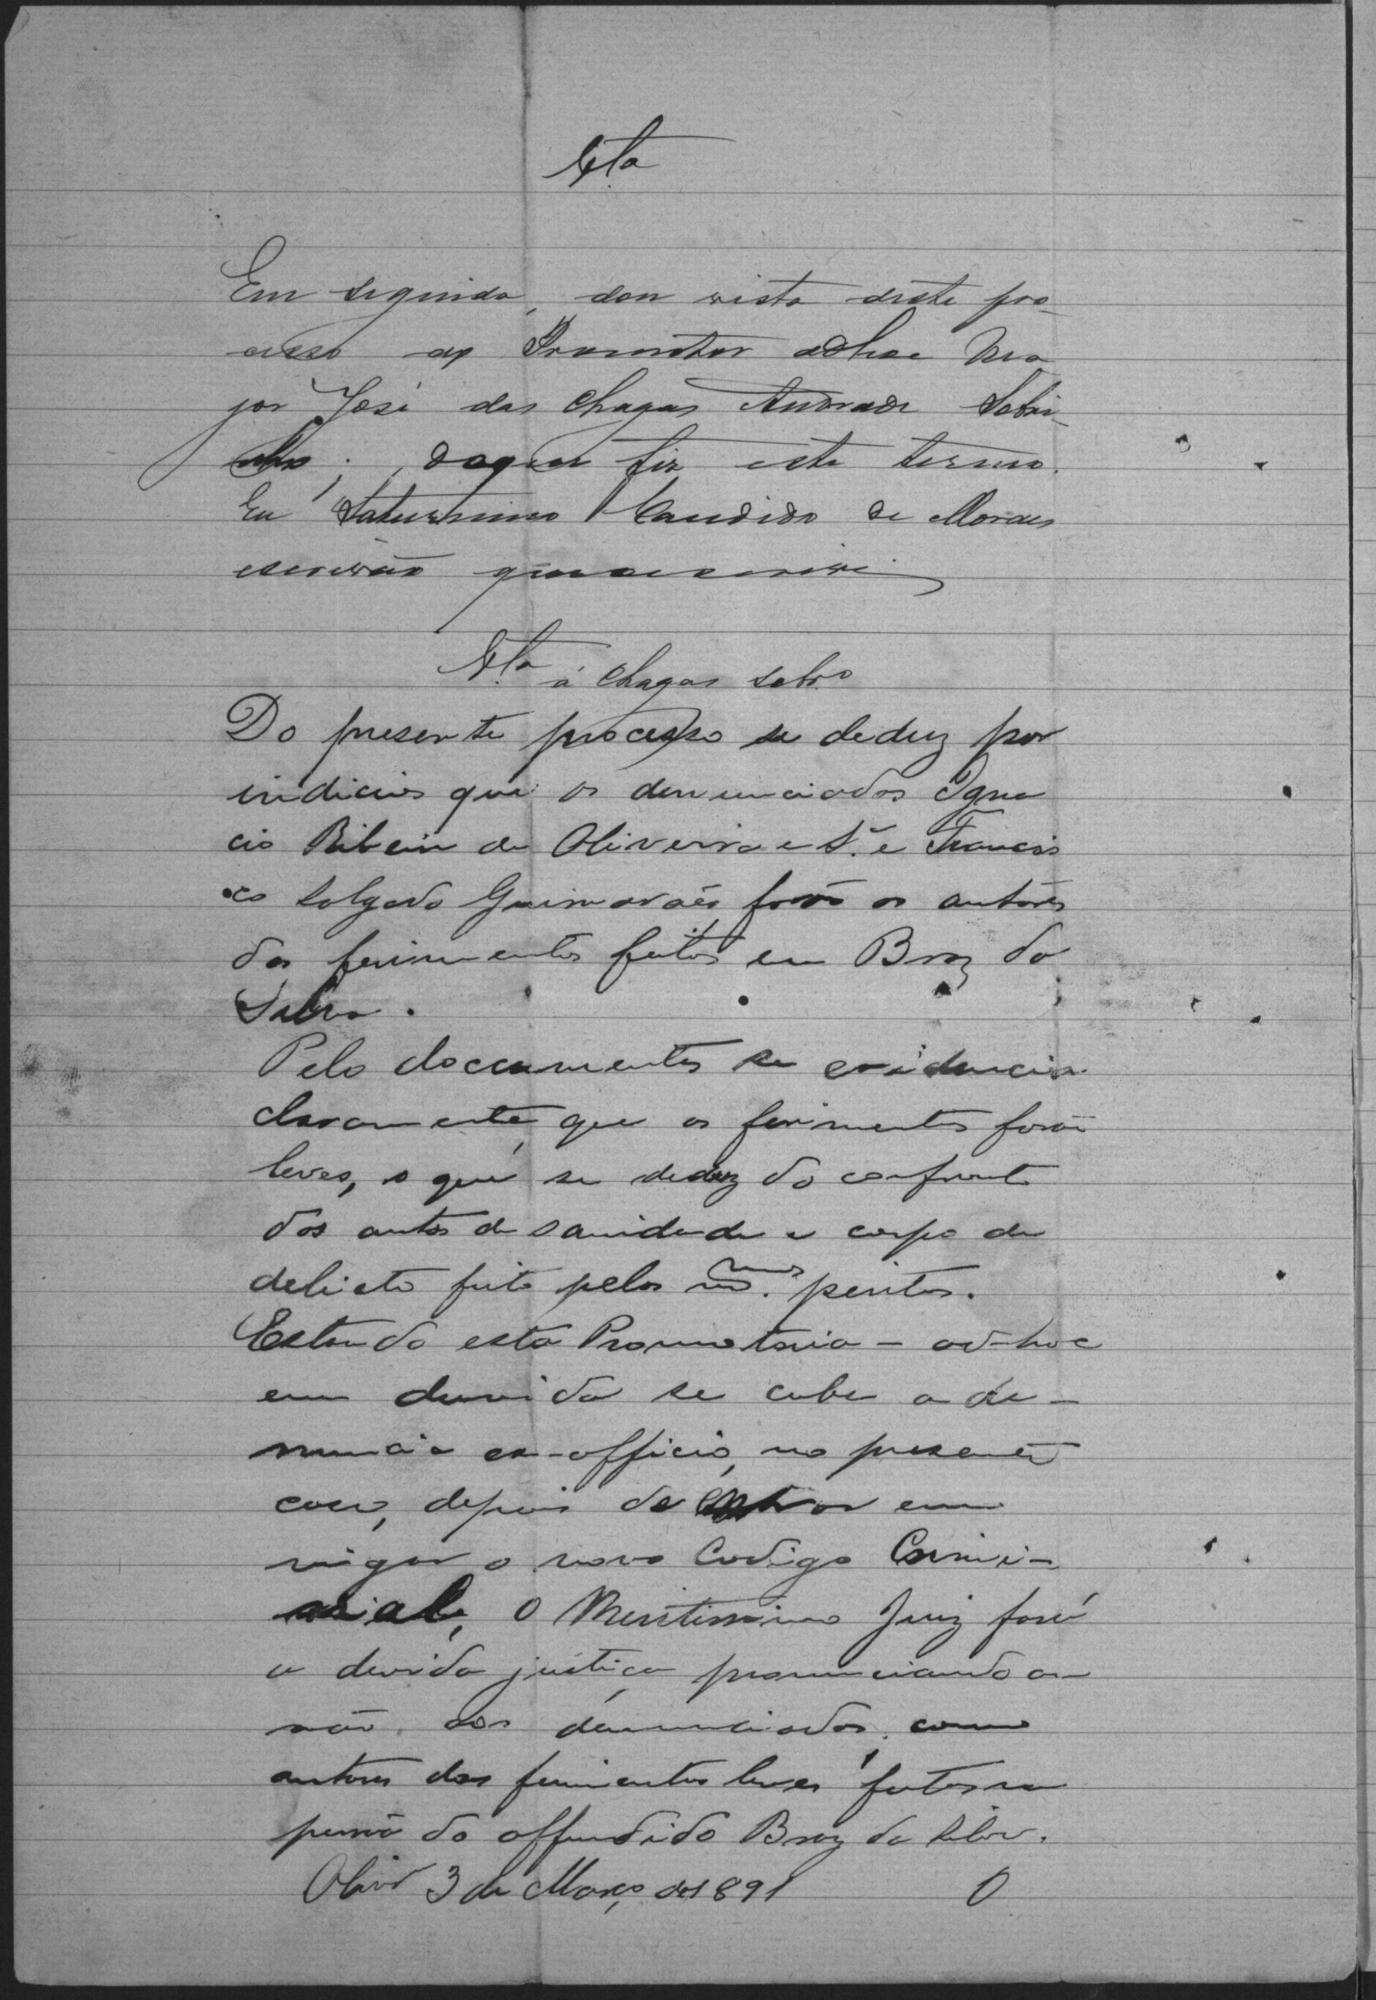 Vta
Em seguida, dou vista deste pro-
cesso ao Promotor adhoc Ma
jor José das Chagas Andrade Sobri-
nho; doque fiz este termo.
Eu Saturnino Candido de Moraes
escrivão que o escrevi
Vta á Chagas Sobro
Do presente processo se deduz por
indicios que os denunciados Igna
cio Ribeiro de Oliveira e Sª e Francis
co Salgado Guimarães forão os autores
dos ferimentos feitos em Braz da
Silva.
Pelo documentos se evidencia
claramente que os ferimentos forão
leves, o que se deduz do confronto
dos autos de sanidade e corpo de
delicto feito pelos mos. peritos.
Estando esta Promotoria - ad-hoc
em duvida se cabe a de-
nuncia ex-officio, no presente
caso, depois de entrar em
vigor o novo Codigo Crimi-
nal, O Meritissimo Juiz fará
a devida justiça pronunciando ou
não aos denunciados, como
autores dos ferimentos leves feitos na
pessôa do offendido Braz da Silva.
Olivª 3 de Março de 1891 O